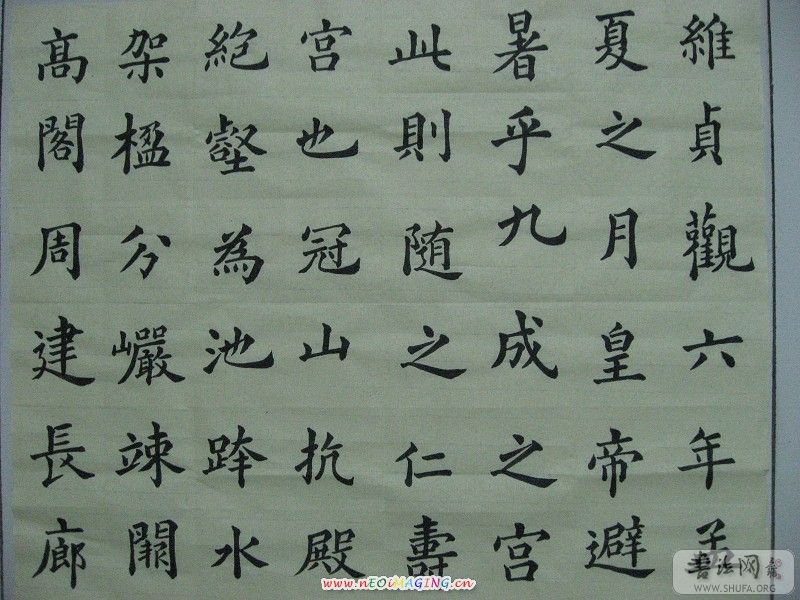 維貞觀六年孟
夏之月皇帝避
暑乎九成之宫
此則随之仁壽
宫也冠山抗殿
絶壑為池跨水
架楹分巖竦闕
髙閣周建長廊
www.nEOiMAGiNG.cn
書法网
WWW.SHUFA.ORG